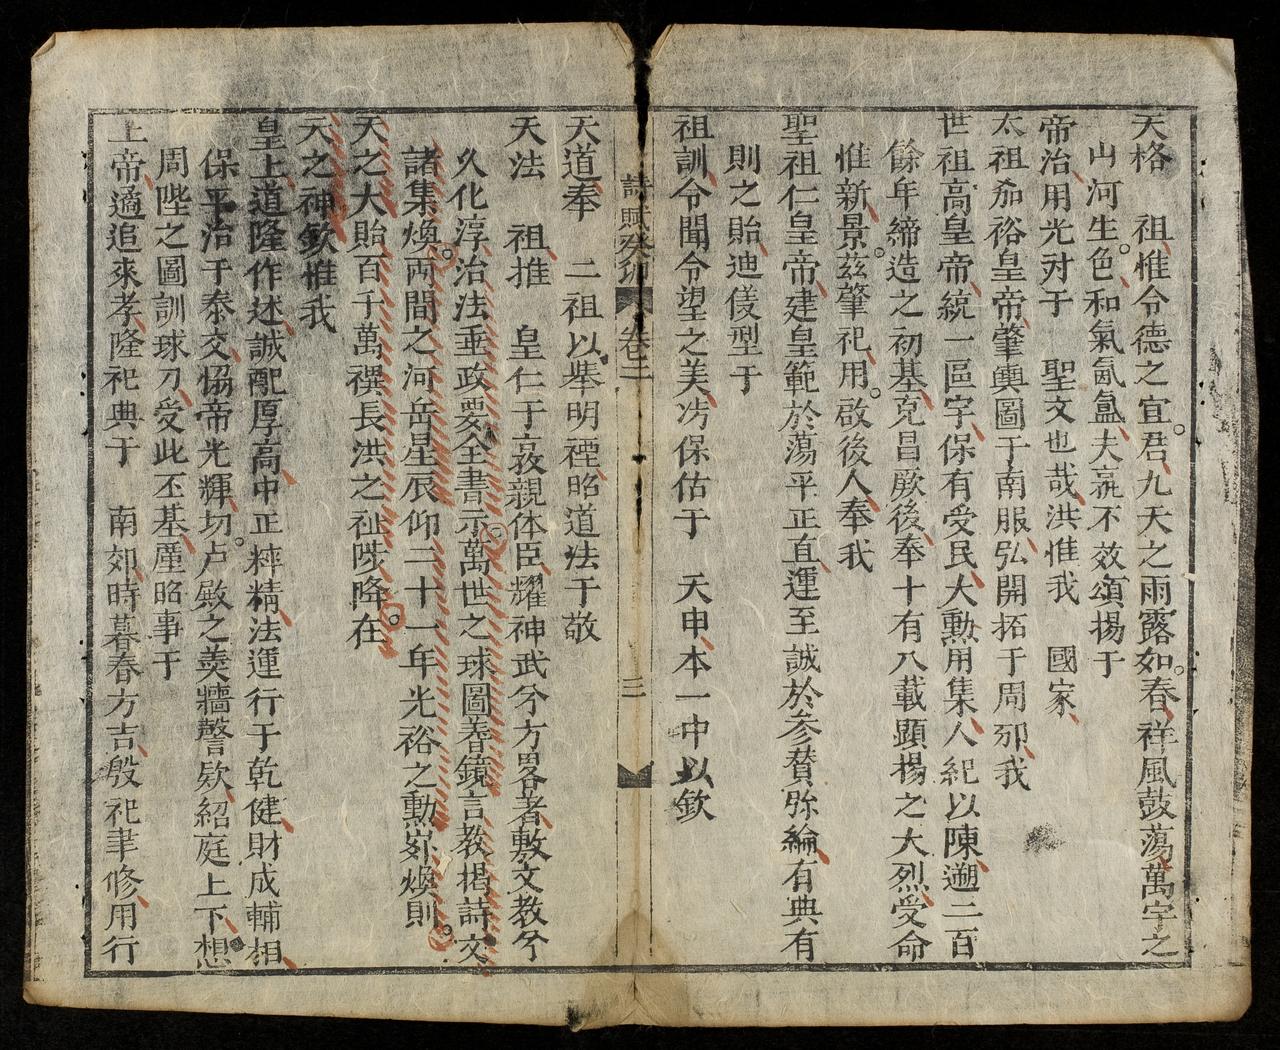 天格　祖惟令德之宜君九天之雨露如春祥風鼓蕩萬宇之
山河生色和氣氤氳夫豈不效頌揚于
帝治用光対于　聖文也哉洪惟我　國家
太祖加裕皇帝肇輿圖于南服弘開拓于周邦我
世祖高皇帝統一區宇保有受民大勲用集人紀以陳遡二百
餘年締造之初基克昌厥後奉十有八載顕揚之大烈受命
惟新景兹肇祀用啟後人奉我
聖祖仁皇帝建皇範於蕩平正直運至誠於参賛弥綸有典有
則之貽迪後型于
祖訓令聞令望之美冯保佑于　天申本一中以欽
詩賦癸卯　卷三　三
天道奉　二祖以舉明禋昭道法于敬
天法　祖推　皇仁于敦親体臣耀神武兮方畧者敷文教兮
久化淳治法垂政要全書示萬世之球圖春鏡言教揭詩文
諸集煥两間之河岳星辰仰二十一年光裕之勲業煥則
天之大貽百千萬禩長洪之祉陟降在
天之神欽惟我
皇上道隆作述誠配厚高中正粹精法運行于乾健財成輔相
保平治于泰交恊帝光輝切卢殿之羮牆謦欬紹庭上下想
周陛之圖訓球刀受此丕基廑昭事于
上帝遹追来孝隆祀典于　南郊時暮春方吉殷祀聿修用行